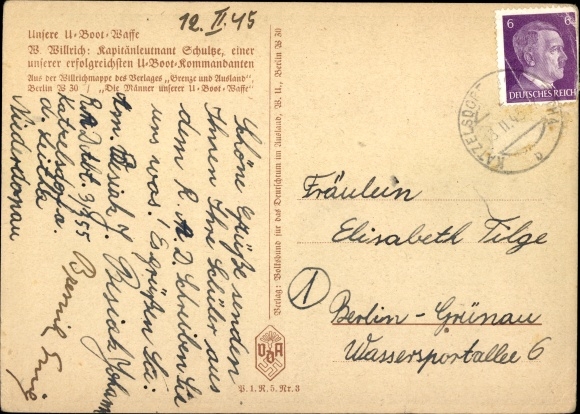 12. II. 45
Unsere U-Boot-Waffe
W. Willrich: Kapitänleutnant Schultze, einer
unserer erfolgreichsten U-Boot-Kommandanten
Aus der Willrichmappe des Verlages „Grenze und Ausland“,
Berlin W 30 / „Die Männer unserer U-Boot-Waffe“
Schöne Grüße senden
Ihnen Ihre Schüler aus
dem R.A.D Schreiben Sie
uns was! Es grüßen Sie:
Johann
R.A.D Abt. 9/355
Katzelsdorf a.
d. Leitha
Niederdonau
Verlag: Volksbund für das Deutschtum im Ausland, W. U., Berlin W 30
VDA
V. 1. R. 5. Nr. 3
6 6
DEUTSCHES REICH
KATZELSDORF
Fräulein
Elisabeth Tilge
1
Berlin-Grünau
Wassersportallee 6